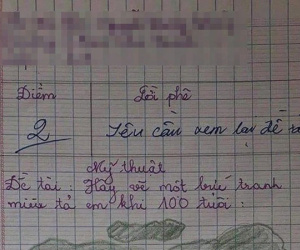 Điểm Lời phê
2 Yêu cầu xem lại đề
Mỹ thuật
Đề tài : Hãy vẽ một bức tranh
miêu tả em khi 100 tuổi :